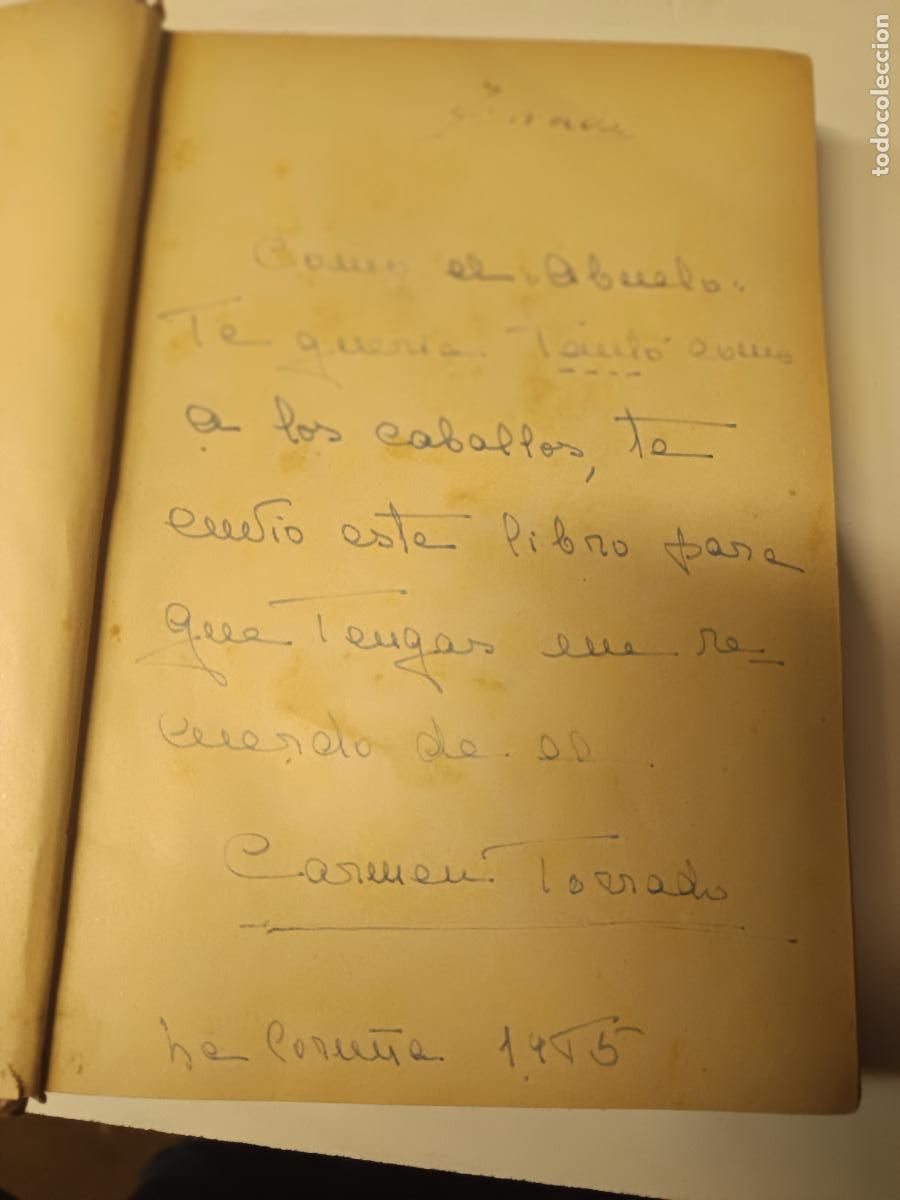 Como el "Abuelo"
Te queria Tanto como
a los caballos, te
envio este libro para
que Tengas un re_
cuerdo de el
Carmen Torrado
La Coruña 1955
todocoleccion